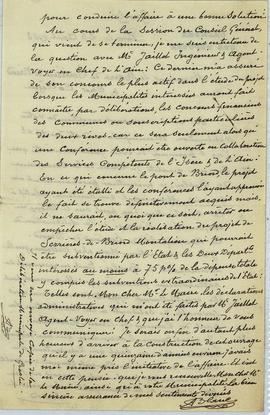 pour conduire l'affaire à une bonne solution.
Au cours de la Session du Conseil Général,
qui vient de se terminer, je me suis entretenu de
la question avec Mr Jaillot Ingénieur & Agent-
Voyer en Chef de l'Ain. Ce dernier m'a assuré
de son concours le plus actif dans l'étude du projet
lorsque les Municipalités intéressées auront fait
connaître par délibérations, les concours financiers
des Communes ou souscriptions particulières
des deux rives. car ce sera seulement alors qu'
une Conférence pourrait être ouverte en collaboration
des Services Compétents de l'Isère & de l'Ain.
En ce qui concerne le pont de Briord, le projet
ayant été établi et les conférences l'ayant approuvé
le fait se trouve définitivement acquis mais
il ne saurait, en quoi que ce soit, arrêter ou
empêcher l'étude et la réalisation du projet de
Serrières-de-Briord Montalieu qui pourrait
être subventionné par l'Etat & les Deux Départ
intéressés au moins à 75 p% de la dépense totale
y compris les subventions extraordinaires de l'Etat.
Telles sont, Mon cher Mr le Maire, les déclarations
administratives qui m'ont été faites par Mr Jaillot
Agent-Voyer en chef &, que j'ai l'honneur de vous
communiquer. Je serais en fin d'autant plus
heureux d'arriver à la construction de cet ouvrage
qu'il y a une quinzaine d'années environ, j'avais
moi même pris l'initiative de l'affaire. C'est dans
cette pensée que je vous renouvelle, Mon cher Mr
le Maire, ainsi qu'à votre Municipalité la bien
sincère assurance de mes sentiments dévoués